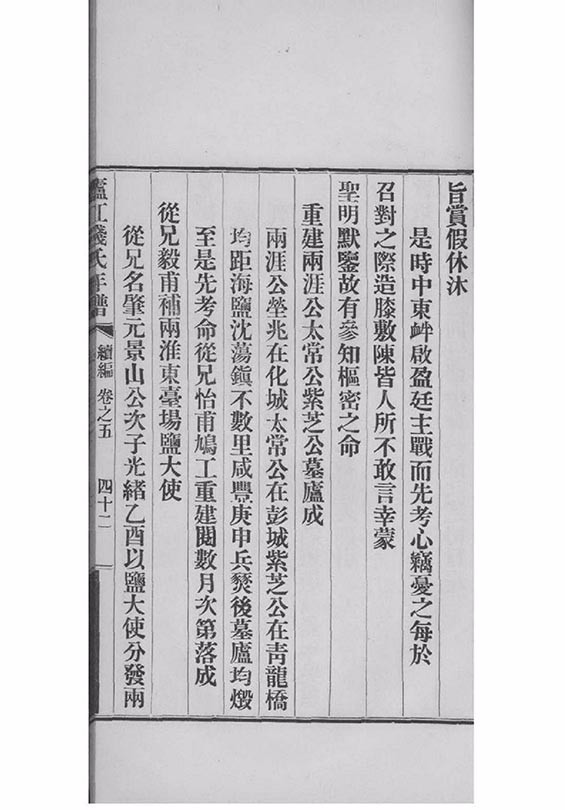 旨賞假休沐
是時中東衅啟盈廷主戰而先考心竊憂之每於
召對之際造膝敷陳皆人所不敢言幸蒙
聖明默鑒故有參知樞密之命
重建兩涯公太常公紫芝公墓廬成
兩涯公塋兆在化城太常公在彭城紫芝公在靑龍橋
均距海鹽沈蕩鎭不數里咸豐庚申兵燹後墓廬均燬
至是先考命從兄怡甫鳩工重建閱數月次第落成
從兄毅甫補兩淮東臺場鹽大使
從兄名肇元景山公次子光緒乙酉以鹽大使分發兩
廬江錢氏年譜 續編 卷之五 四十二